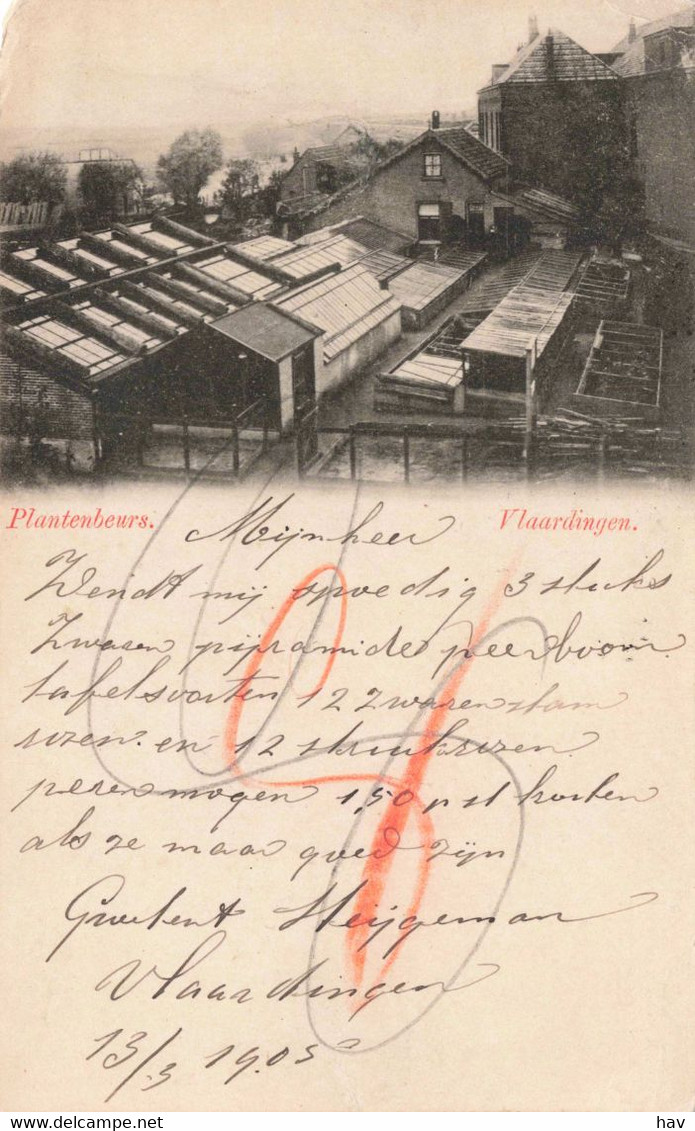 Plantenbeurs. Vlaardingen.
Mijnheer
Zendt mij spoedig 3 stuks
Zware pijramide peerboom
tafelsoorten 12 Zware stam
rozen. en 12 struikrozen
peren mogen 1,50 p st kosten
als ze maar goed zijn
Groetent Heijgeman
Vlaardingen
13/3 1903
DELCAMPE.NET
hav